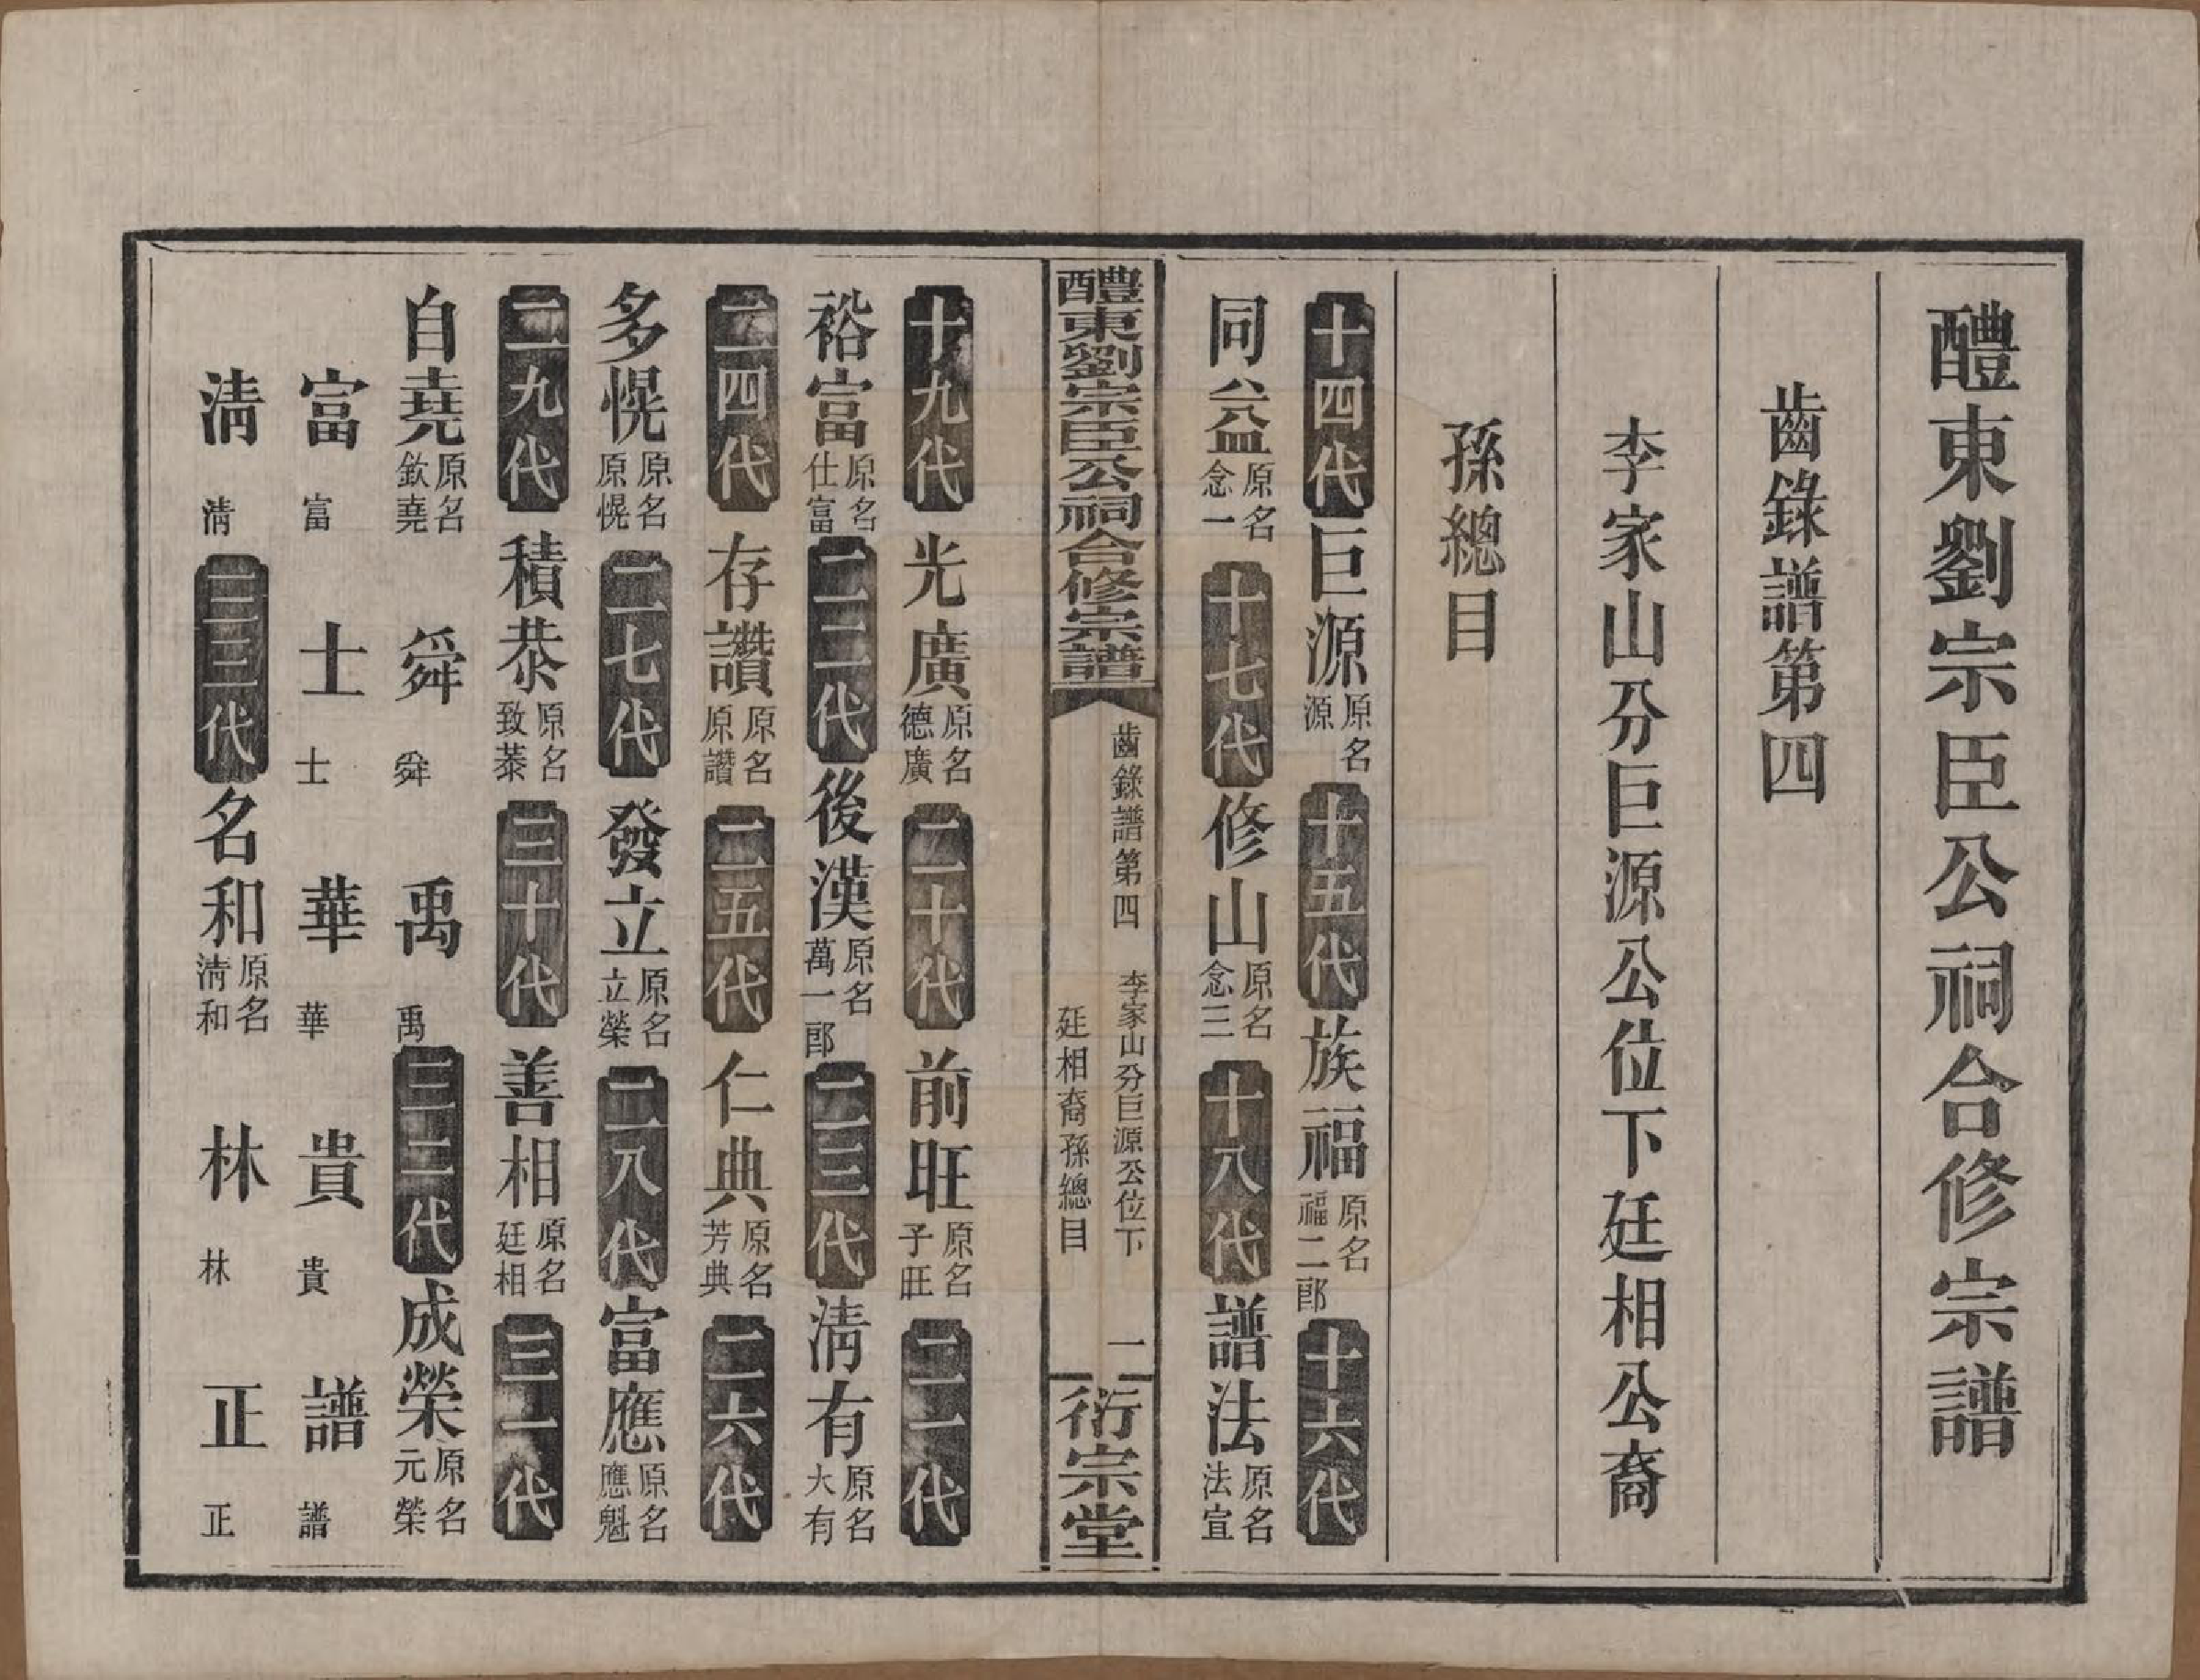 醴東劉宗臣公祠合修宗譜
齒錄譜第四
李家山分巨源公位下廷相公裔
孫總目
十四代 巨源 原名源 十五代 族福 原名福二郎 十六代
同公益 原名念一 十七代 修山 原名念三 十八代 譜法 原名法宣
醴東劉宗臣公祠合修宗譜 齒錄譜第四 李家山分巨源公位下廷相裔孫總目 一 衍宗堂
十九代 光廣 原名德廣 二十代 前旺 原名予旺 二一代
裕富 原名仕富 二二代 後漢 原名萬一郎 二三代 清有 原名大有
二四代 存讚 原名原讚 二五代 仁典 原名芳典 二六代
多愰 原名原愰 二七代 發立 原名立榮 二八代 富應 原名應魁
二九代 積恭 原名致恭 三十代 善相 原名廷相 三一代
自堯 原名欽堯 舜 舜 禹 禹 三二代 成榮 原名元榮
富 富 士 士 華 華 貴 貴 譜 譜
清 清 三三代 名和 原名清和 林 林 正 正